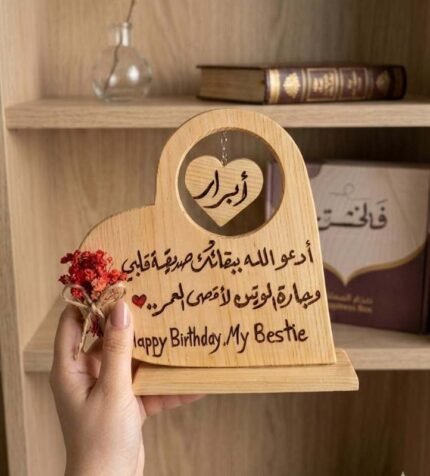 أبرار
أدعو الله ببقائك صديقة قلبي
وجارة الوتين لأقصى العمر..
Happy Birthday, My Bestie